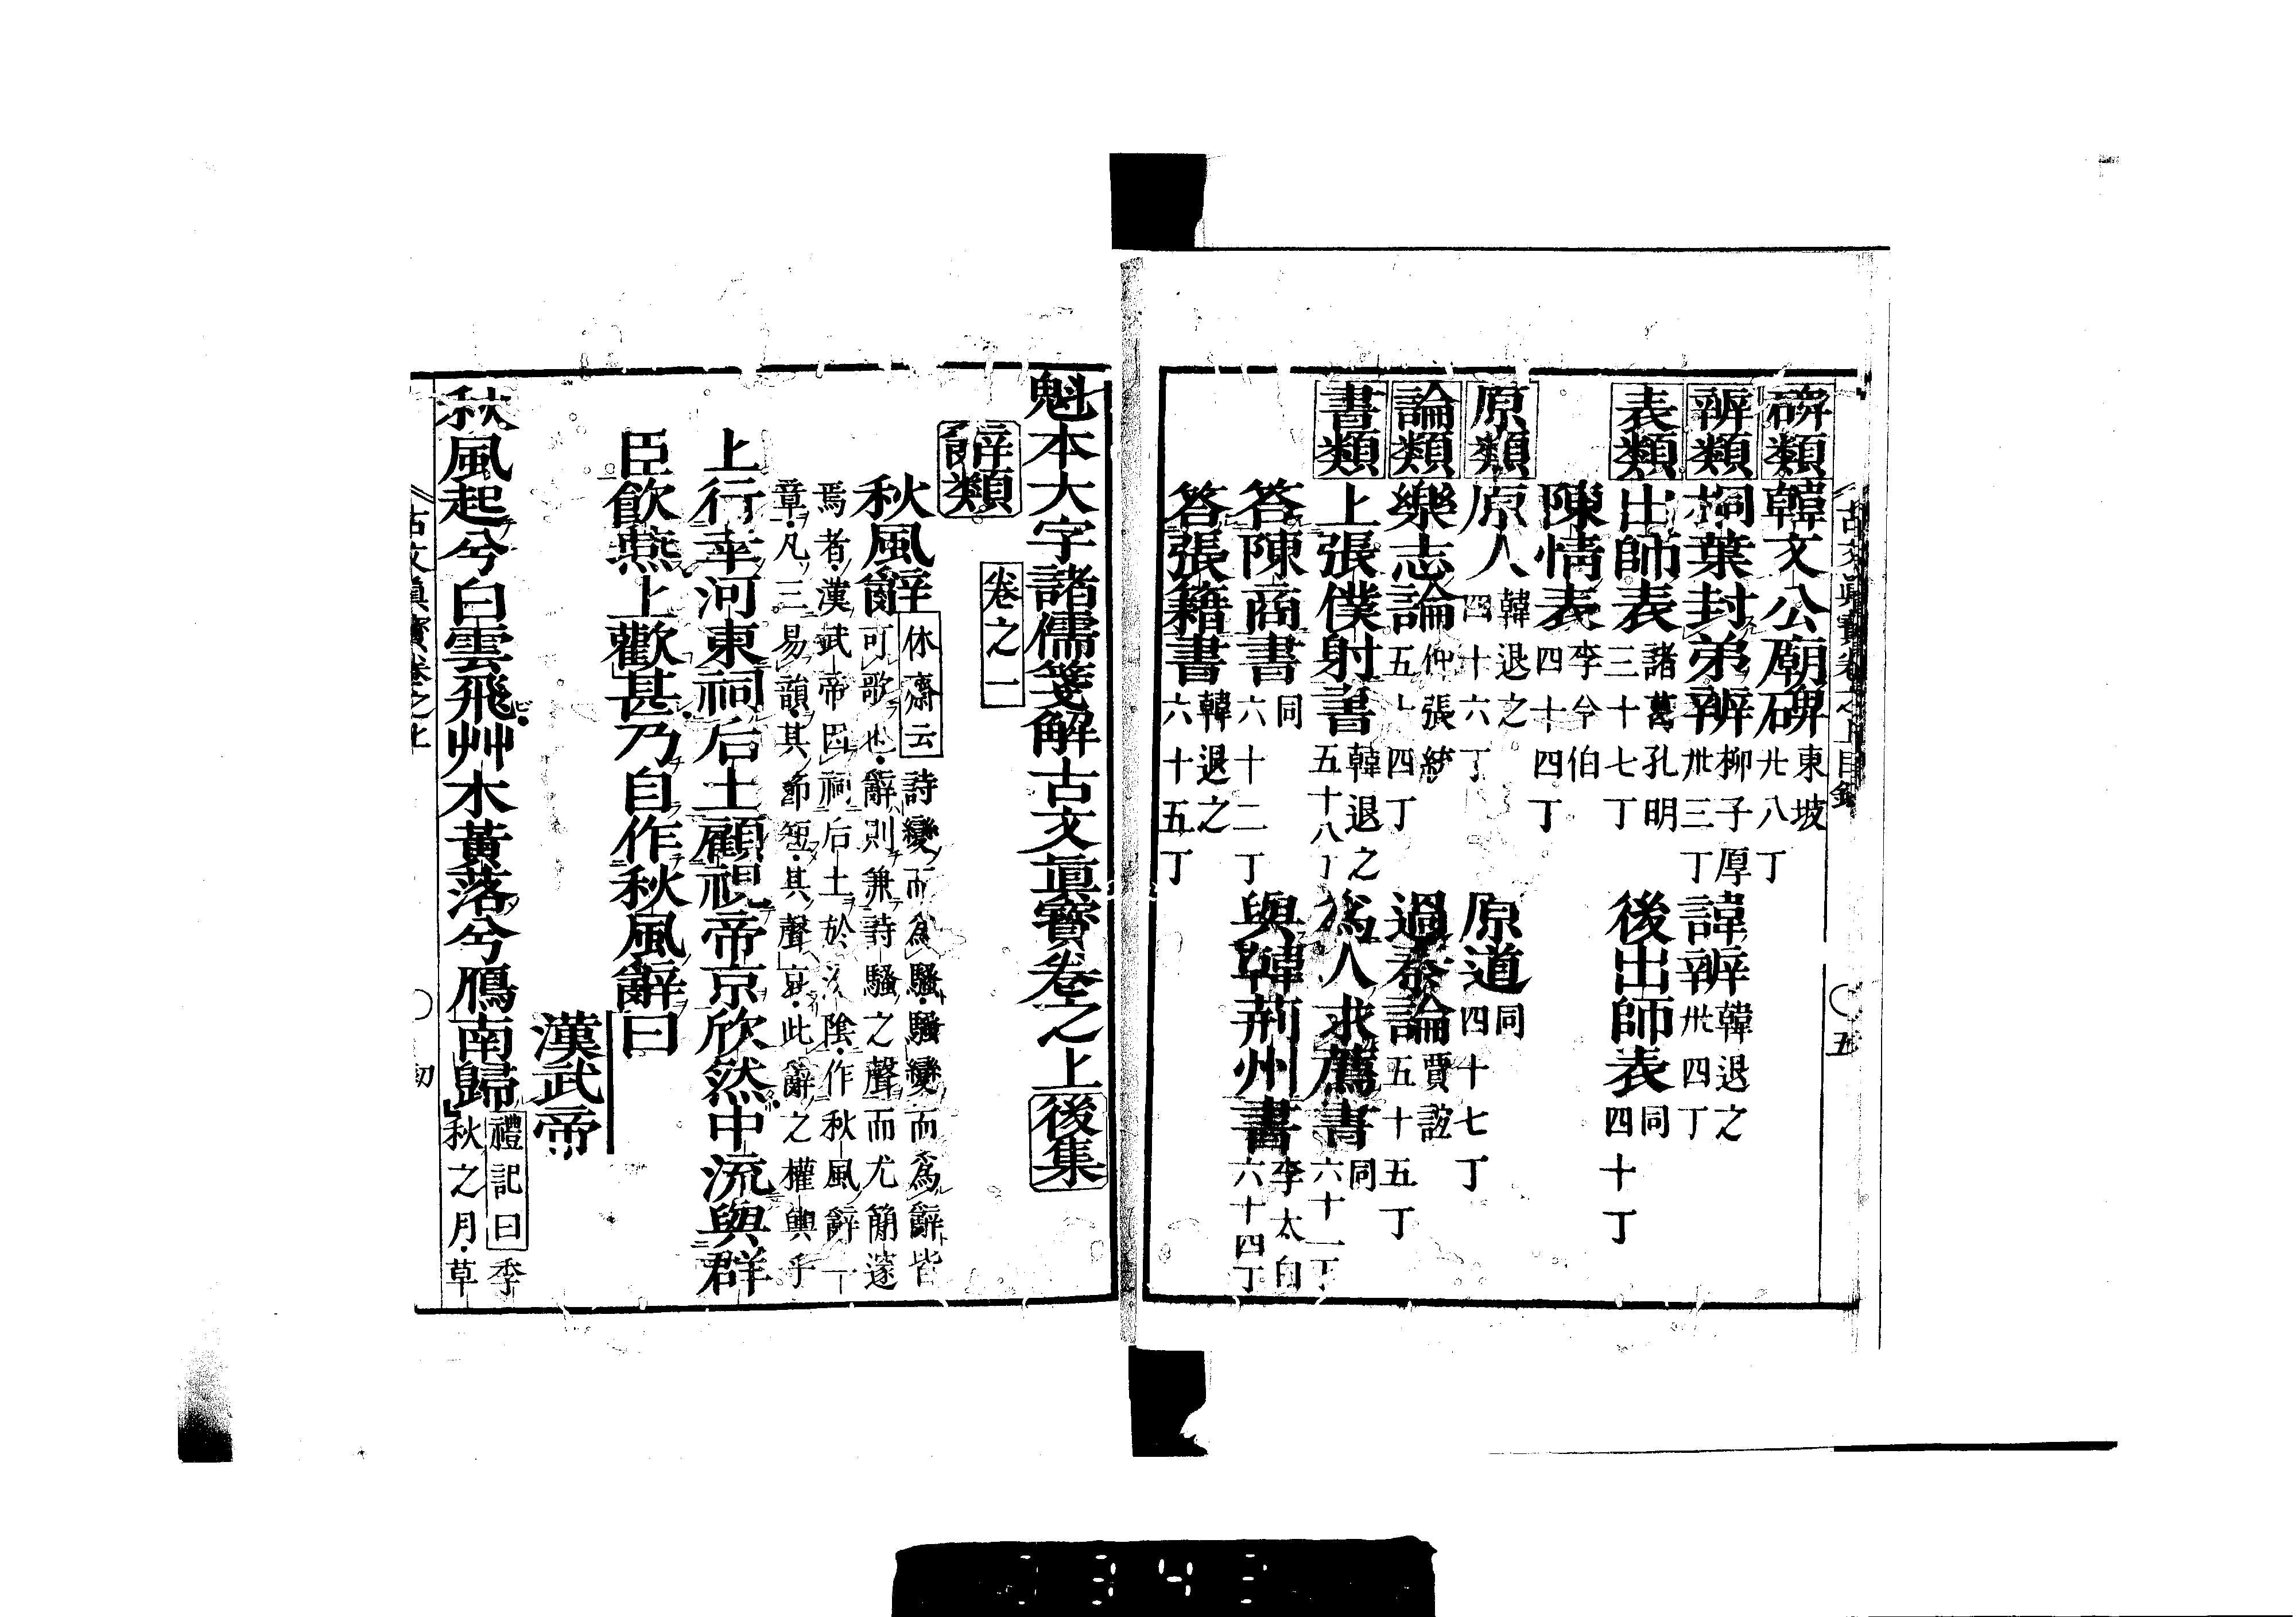 碑類 韓文公廟碑 東坡 廿八丁
辨類 桐葉封弟辨 柳子厚 卅三丁 諱辨 韓退之 卅四丁
表類 出師表 諸葛孔明 三十七丁 後出師表 同 四十丁
陳情表 李令伯 四十四丁
原類 原人 韓退之 四十六丁 原道 同 四十七丁
論類 樂志論 仲長統 五十四丁 過秦論 賈誼 五十五丁
書類 上張僕射書 韓退之 五十八丁 爲人求薦書 同 六十一丁
答陳商書 同 六十二丁 與韓荊州書 李太白 六十四丁
答張籍書 韓退之 六十五丁
魁本大字諸儒箋解古文眞寶卷之上 後集
卷之一
辭類
秋風辭 休齋云 詩變而爲騷騷變而爲辭皆
可歌也辭則兼詩騷之聲而尤簡邃
焉者漢武帝因祠后土於汾陰作秋風辭一
章凡三易韻其節短其聲哀此辭之權輿乎
上行幸河東祠后土顧視帝京欣然中流與群
臣飮燕上歡甚乃自作秋風辭曰
漢武帝
秋風起兮白雲飛艸木黃落兮鴈南歸 禮記曰 季
秋之月草
古文眞寶卷之上